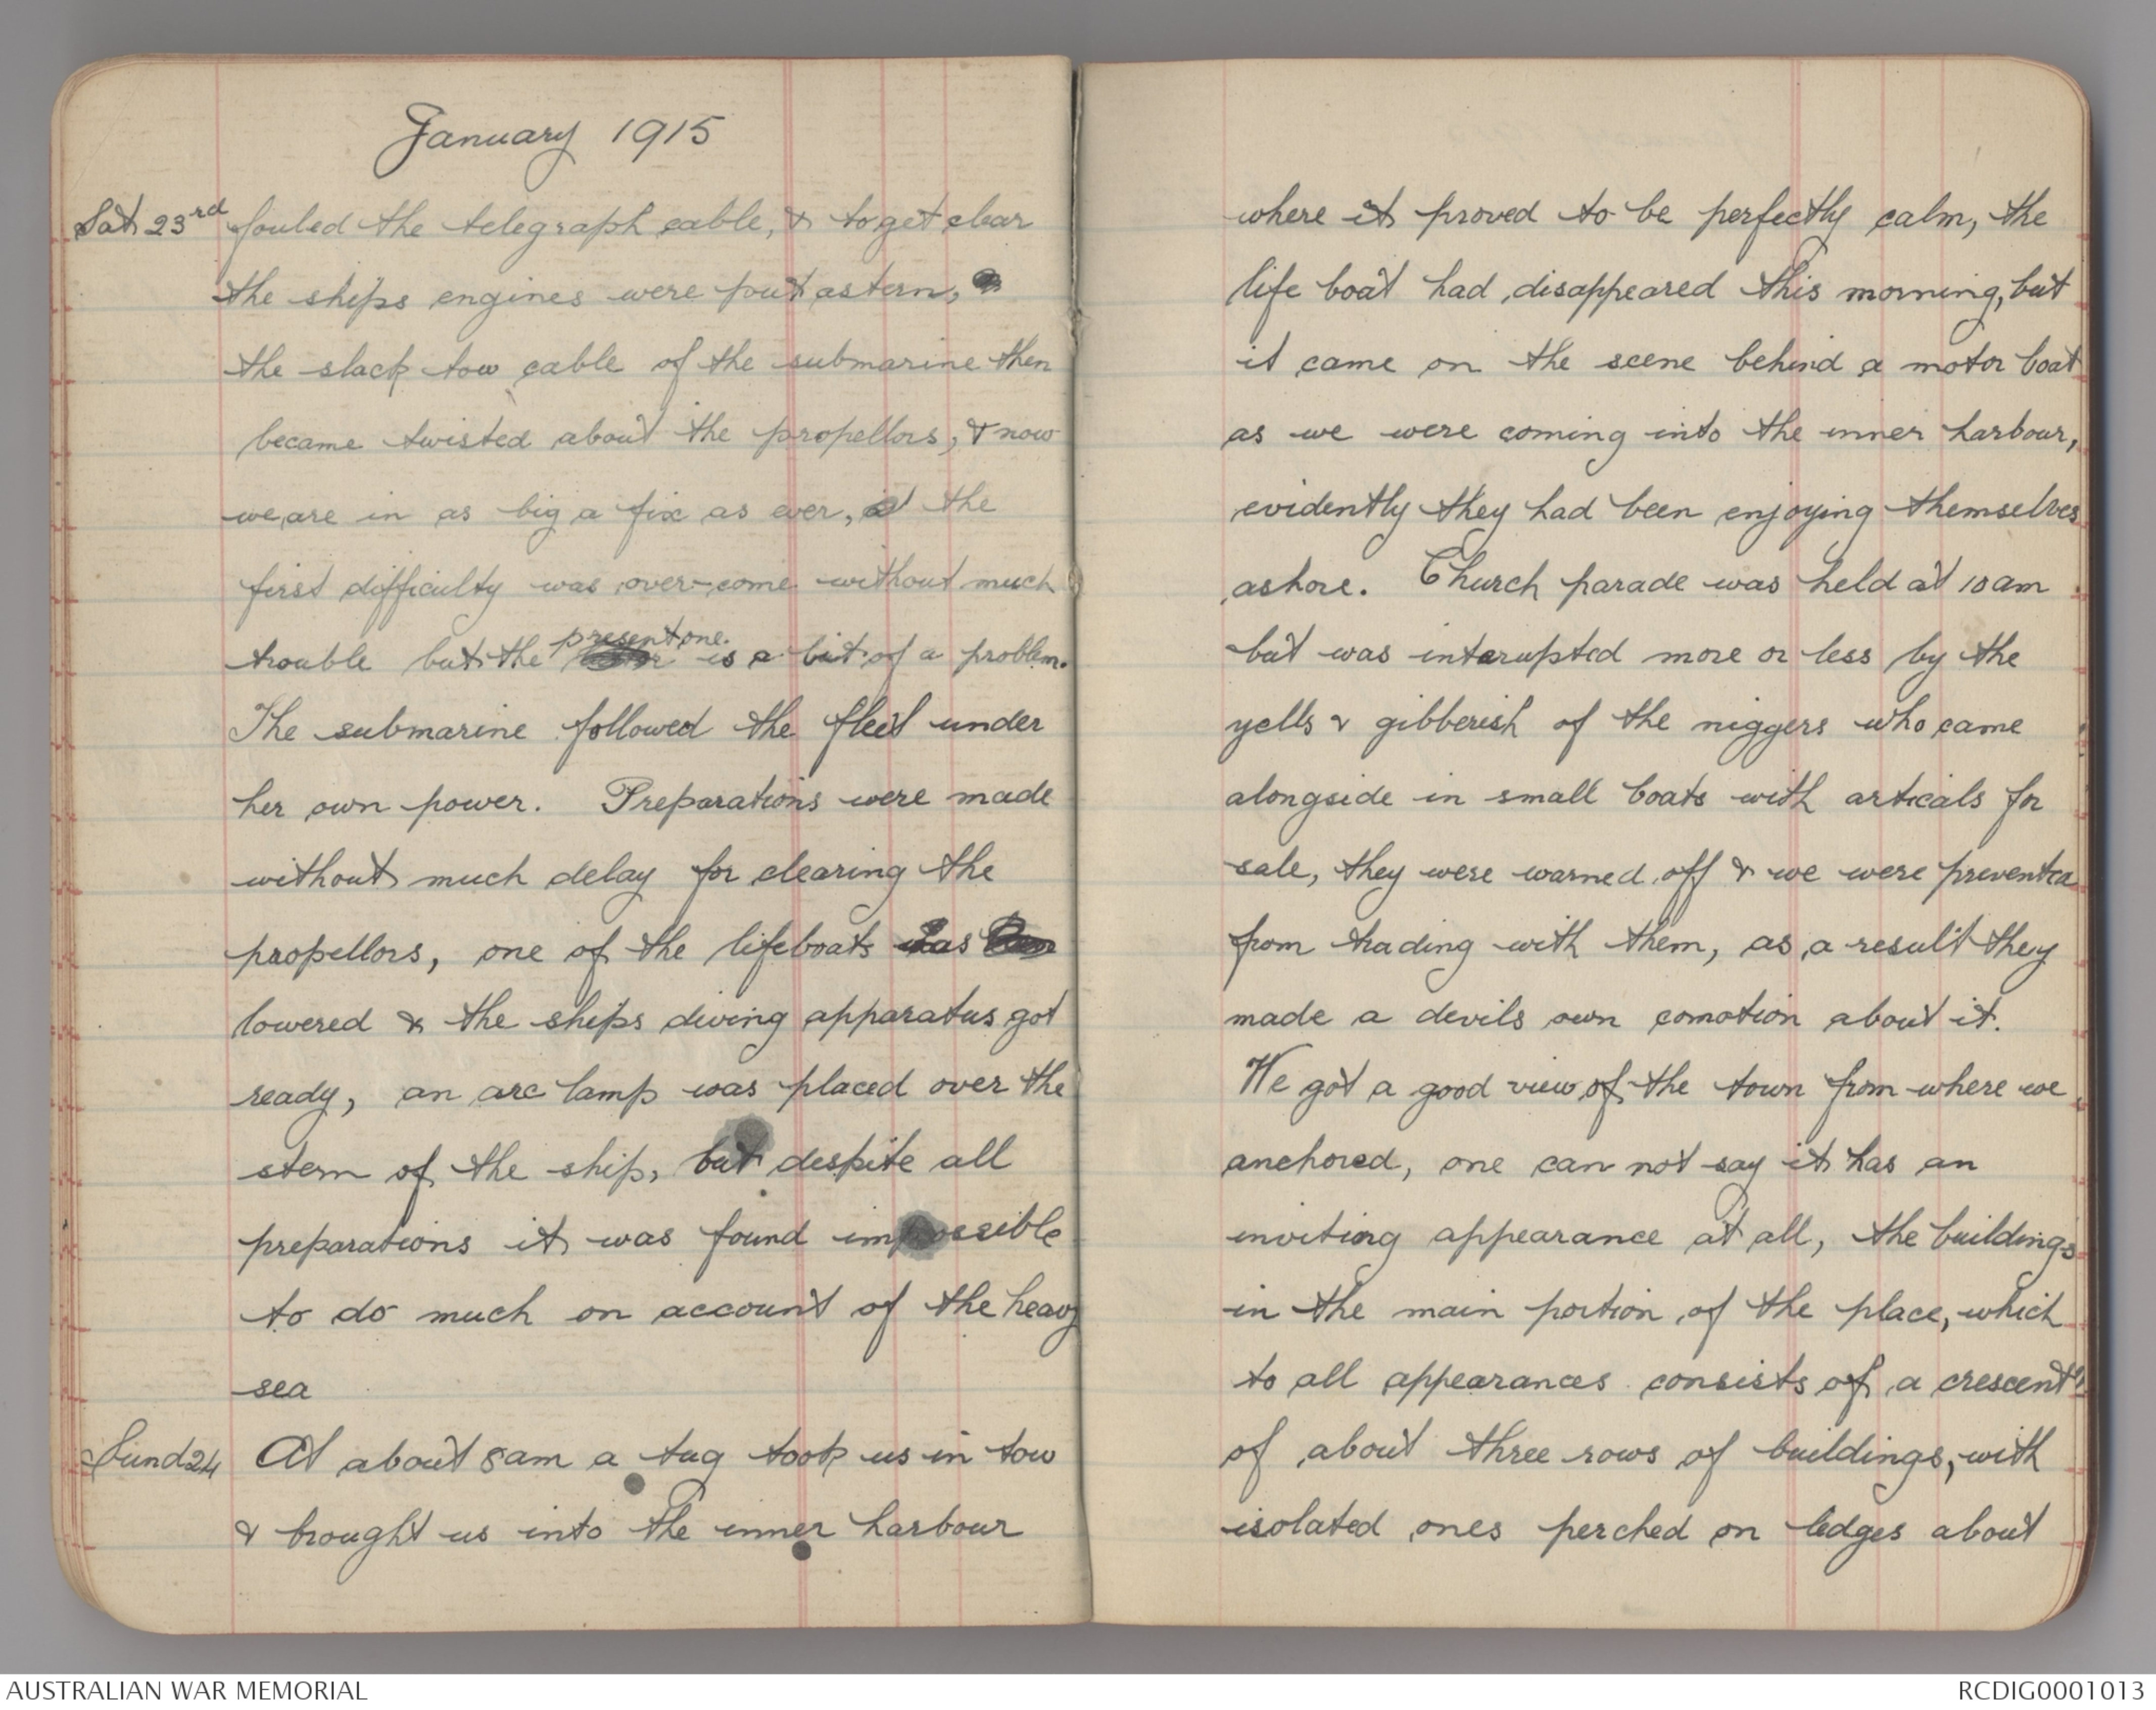 January 1915
Sat 23rd fouled the telegraph cable, & to get clear
the ships engines were put astern,
the slack tow cable of the submarine then
became twisted about the propellors, & now
we are in as big a fix as ever, the
first difficulty was over-come without much
trouble but the present one. is a bit of a problem.
The submarine followed the fleet under
her own power. Preparations were made
without much delay for clearing the
propellors, one of the lifeboats was
lowered & the ships diving apparatus got
ready, an arc lamp was placed over the
stern of the ship, but despite all
preparations it was found impossible
to do much on account of the heavy
sea
Sund 24 At about 8 am a tug took us in tow
& brought us into the inner harbour
where it proved to be perfectly calm, the
life boat had disappeared this morning, but
it came on the scene behind a motor boat
as we were coming into the inner harbour,
evidently they had been enjoying themselves
ashore. Church parade was held at 10 am
but was interupted more or less by the
yells & gibberish of the niggers who came
alongside in small boats with articals for
sale, they were warned off & we were prevented
from trading with them, as a result they
made a devils own comotion about it.
We got a good view of the town from where we
anchored, one can not say it has an
inviting appearance at all, the buildings
in the main portion of the place, which
to all appearances consists of a crescent
of about three rows of buildings, with
isolated ones perched on ledges about
AUSTRALIAN WAR MEMORIAL
RCDIG0001013